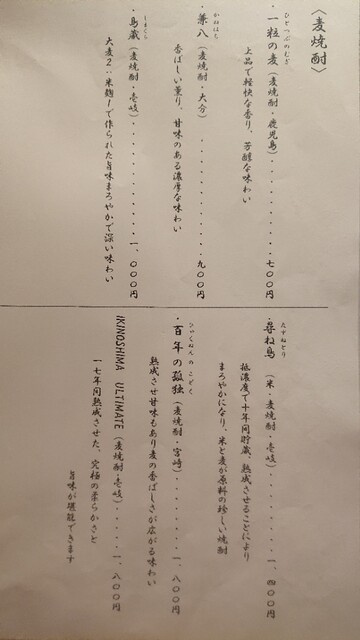 〈麦焼酎〉
ひとつぶのむぎ
・一粒の麦（麦焼酎・鹿児島）・・・・・・・・・・七〇〇円
上品で軽快な香り、芳醇な味わい
かねはち
・兼八（麦焼酎・大分）・・・・・・・・・・・・・九〇〇円
香ばしい薫り、甘味のある濃厚な味わい
しまくら
・島蔵（麦焼酎・壱岐）・・・・・・・・・・一、〇〇〇円
大麦2：米麹1で作られた旨味まろやかで深い味わい
たずねどり
・尋ね鳥（米・麦焼酎・壱岐）・・・・・・一、四〇〇円
低濃度で十年間貯蔵、熟成させることにより
まろやかになり、米と麦が原料の珍しい焼酎
ひゃくねんのこどく
・百年の孤独（麦焼酎・宮崎）・・・・・・一、八〇〇円
熟成させ甘味もあり麦の香ばしさが広がる味わい
IKINOSHIMA ULTIMATE（麦焼酎・壱岐）・・・・・一、八〇〇円
一七年間熟成させた、究極の柔らかさと
旨味が堪能できます